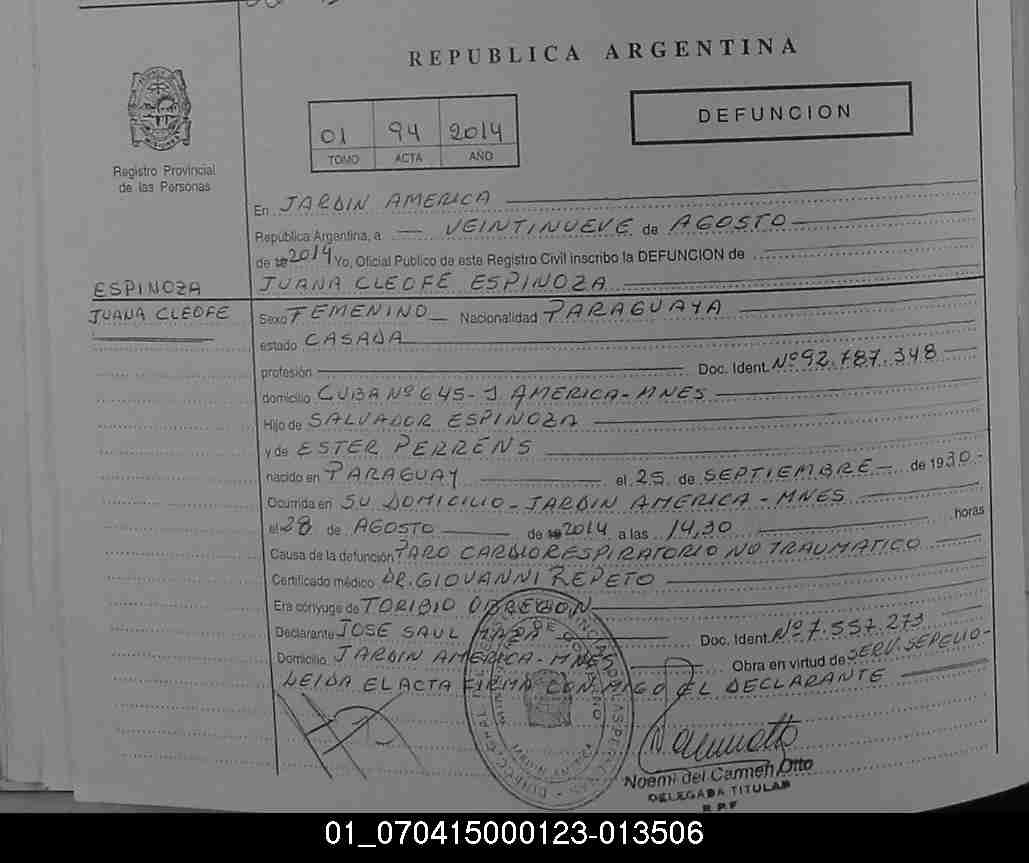 REPUBLICA ARGENTINA
DEFUNCION
01 94 2014
TOMO ACTA AÑO
Registro Provincial
de las Personas
En JARDIN AMERICA
República Argentina, a VEINTINUEVE de AGOSTO
de 2014 Yo, Oficial Público de este Registro Civil inscribo la DEFUNCION de
ESPINOZA
JUANA CLEOFE
JUANA CLEOFE ESPINOZA
Sexo FEMENINO Nacionalidad PARAGUAYA
estado CASADA
profesión Doc. Ident. Nº 92.787.348
domicilio CUBA Nº 645 - J. AMERICA - MNES
Hijo de SALVADOR ESPINOZA
y de ESTER PERRENS
nacido en PARAGUAY el 25 de SEPTIEMBRE de 1930
Ocurrida en SU DOMICILIO - JARDIN AMERICA - MNES
el 28 de AGOSTO de 2014 a las 14,30 horas
Causa de la defunción PARO CARDIORESPIRATORIO NO TRAUMATICO
Certificado médico DR. GIOVANNI REPETO
Era cónyuge de TORIBIO OBREGON
Declarante JOSE SAUL Doc. Ident. Nº 7.557.273
Domicilio JARDIN AMERICA - MNES Obra en virtud de SERV. SEPELIO -
LEIDA EL ACTA FIRMA CONMIGO EL DECLARANTE
Noemi del Carmen Otto
DELEGADA TITULAR
R.P.F
01_070415000123-013506